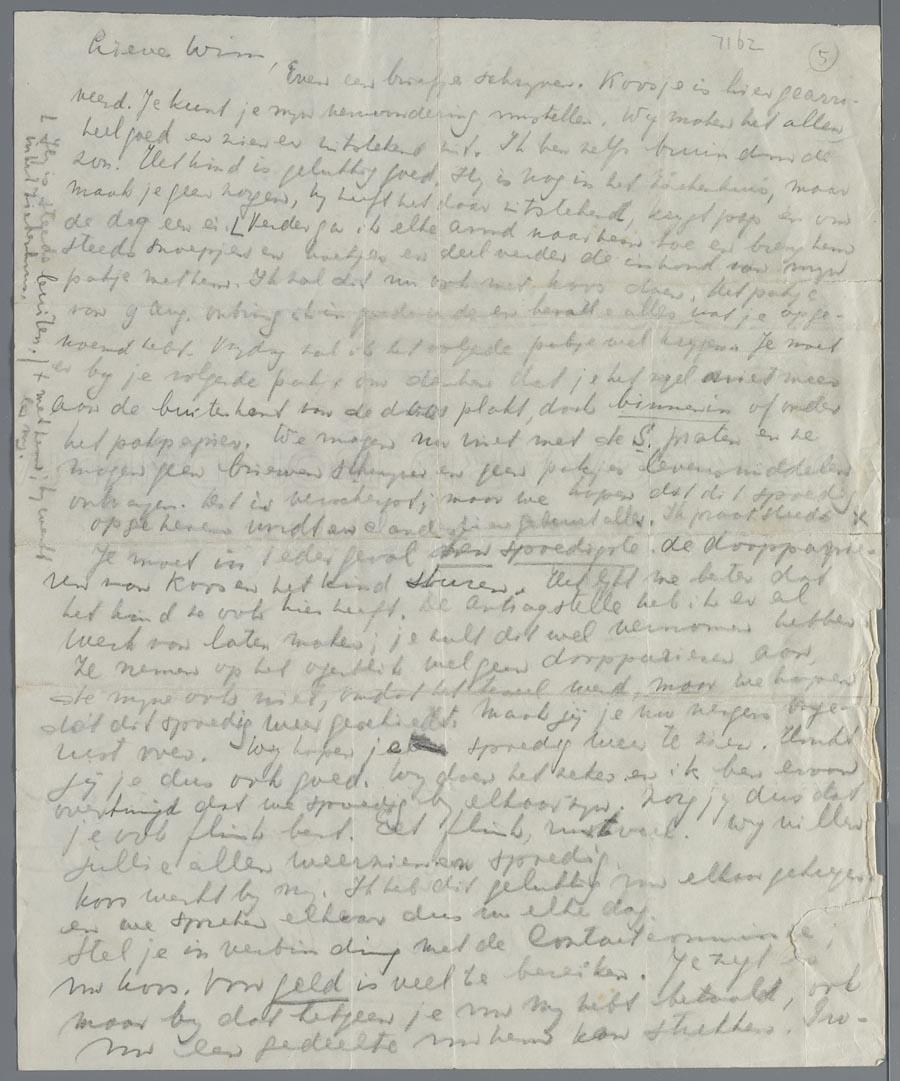 7162
5
Lieve Wim,
Even een briefje schrijven. Koosje is hier gearri-
veerd. Je kunt je mijn verwondering voorstellen. Wij maken het allen
heel goed en zien er uitstekend uit. Ik ben zelfs bruin door de
zon. Het kind is gelukkig goed. Hij is nog in het ziekenhuis, maar
maak je geen zorgen, hij heeft het daar uitstekend, krijgt pap en om
de dag een ei. Verder ga ik elke avond naar hem toe en breng hem
steeds snoepjes en koekjes en deel verder de inhoud van mijn
pakje met hem. Ik zal dat nu ook met Koos doen. Het pakje
van 9 Aug. ontving ik in goede orde en bevatte alles wat je opge-
noemd hebt. Vrijdag zal ik het volgende pakje wel krijgen. Je moet
er bij je volgende pakje om denken dat je het zegel niet meer
aan de buitenkant van de doos plakt, doch binnenin of onder
het pakpapier. We mogen nu niet met de S. praten en ze
mogen geen brieven schrijven en geen pakjes levensmiddelen
ontvangen. maar we hopen dat dit spoedig
opgeheven wordt Ik praat steeds x
Je moet in ieder geval ten spoedigste de dooppapie-
ren van Koos en het kind sturen. Het lijkt me beter dat
het kind ze ook hier heeft. De Antragstelle heb ik er al
werk van laten maken; je zult dit wel vernomen hebben
Ze nemen op het ogenblik wel geen dooppapieren aan,
de mijne ook niet, omdat het teveel werd, maar we hopen
dat dit spoedig weer geschiedt. Maak jij je nu nergens onge-
rust over. Wij hopen je spoedig weer te zien. Houdt
jij je dus ook goed. Wij doen het zeker en ik ben ervan
overtuigd dat we spoedig bij elkaar zijn. Zorg jij dus dat
je ook flink bent. Eet flink, rust veel. Wij willen
jullie allen weerzien en spoedig.
Koos werkt bij mij. Ik heb dit gelukkig voor elkaar gekregen
en we spreken elkaar dus nu elke dag.
Stel je in verbinding met de Contactcommissie,
voor Koos. Voor geld is veel te bereiken. Je zegt
maar bij dat hetgeen je voor mij hebt betaald, ook
voor een gedeelte voor hem kan strekken. Pro-
Hij is steeds buiten. / x met hem; hij werkt
in het ziekenhuis. bij mij.